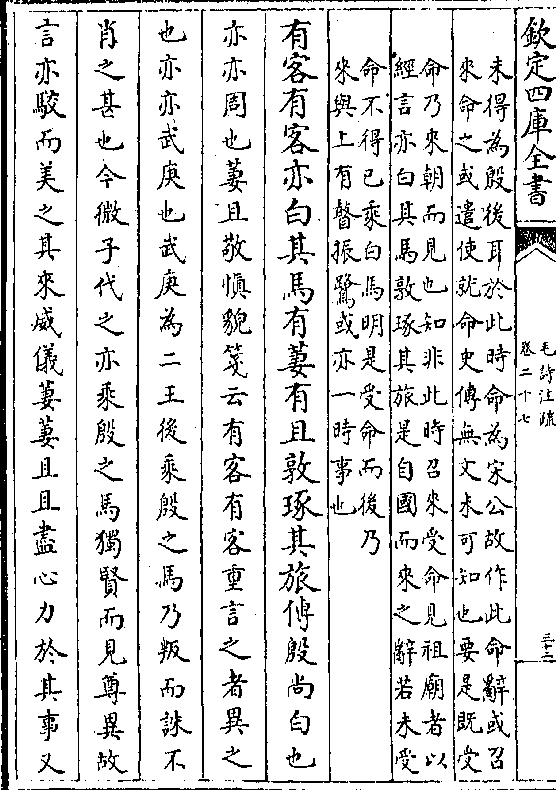 欽定四庫全書
毛詩注疏
卷二十七
三十二
未得為殷後耳於此時命為宋公故作此命辭或召
來命之或遣使就命史傳無文未可知也要是既受
命乃來朝而見也知非此時召來受命見祖廟者以
經言亦白其馬敦琢其旅是自國而來之辭若未受
命不得已乘白馬明是受命而後乃
來與上有瞽振鷺或亦一時事也
有客有客亦白其馬有萋有且敦琢其旅傳殷尚白也
亦亦周也萋且敬慎貌箋云有客有客重言之者異之
也亦亦武庚也武庚為二王後乘殷之馬乃叛而誅不
肖之甚也今微子代之亦乘殷之馬獨賢而見尊異故
言亦駮而美之其來威儀萋萋且且盡心力於其事又